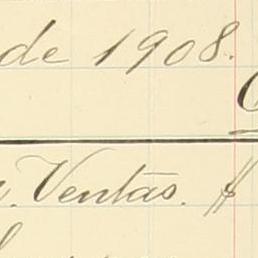 de 1908.
Ventas. $